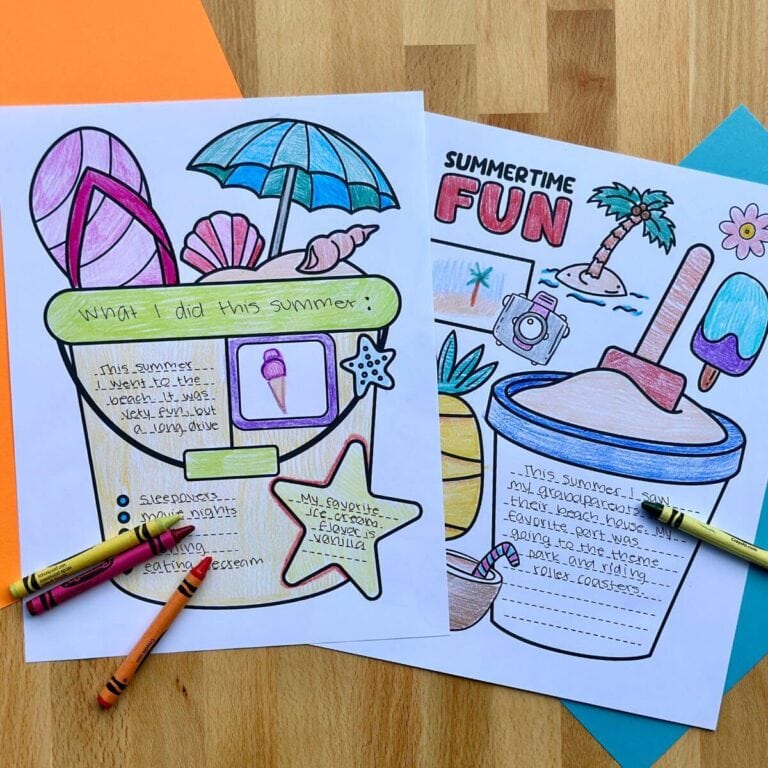 What I did this summer:
This summer
I went to the
beach it was
very fun but
a long drive
sleepovers
movie nights
eating icecream
My favorite
ice cream
flavor is
vanilla
SUMMERTIME
FUN
This summer I saw
my grandparents
their beach house. My
favorite part was
going to the theme
park and riding
roller coasters.